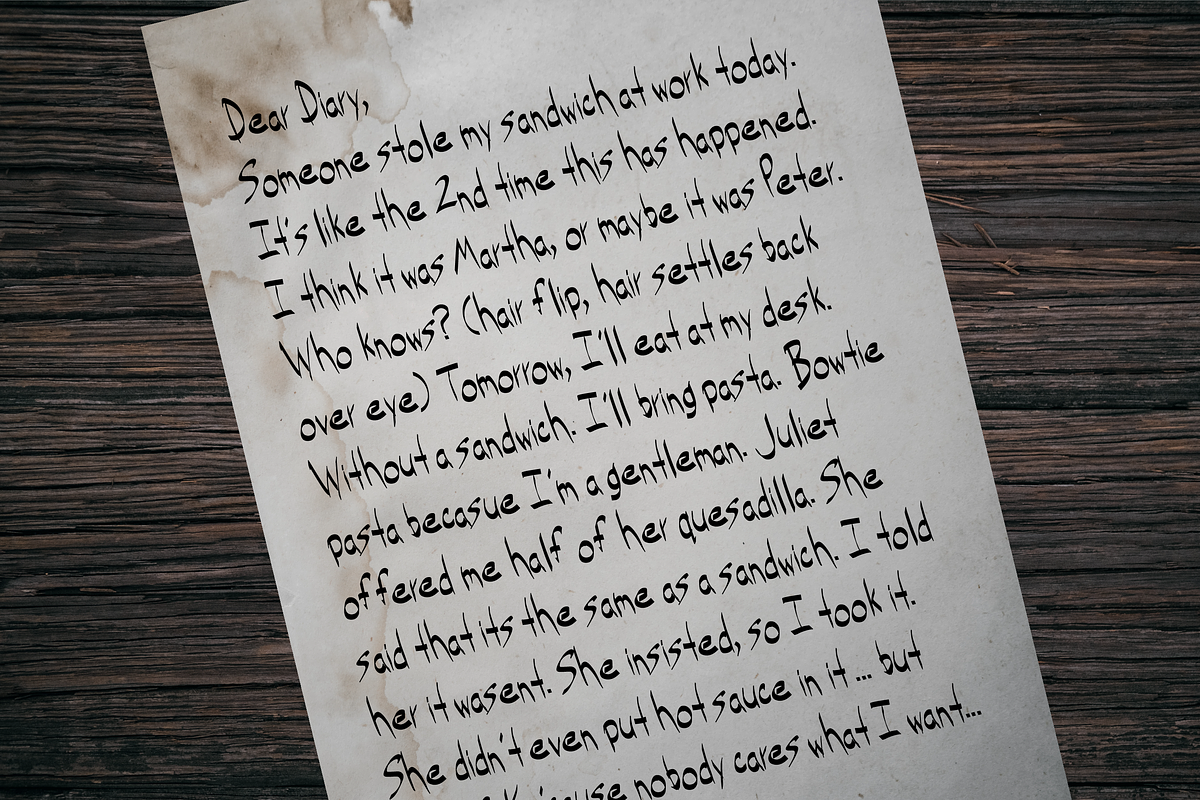 Dear Diary,
Someone stole my sandwich at work today.
It's like the 2nd time this has happened.
I think it was Martha, or maybe it was Peter.
Who knows? (hair flip, hair settles back
over eye) Tomorrow, I'll eat at my desk.
Without a sandwich. I'll bring pasta. Bowtie
pasta becasue I'm a gentleman. Juliet
offered me half of her quesadilla. She
said that its the same as a sandwich. I told
her it wasent. She insisted, so I took it.
She didn't even put hot sauce in it ... but
nobody cares what I want...